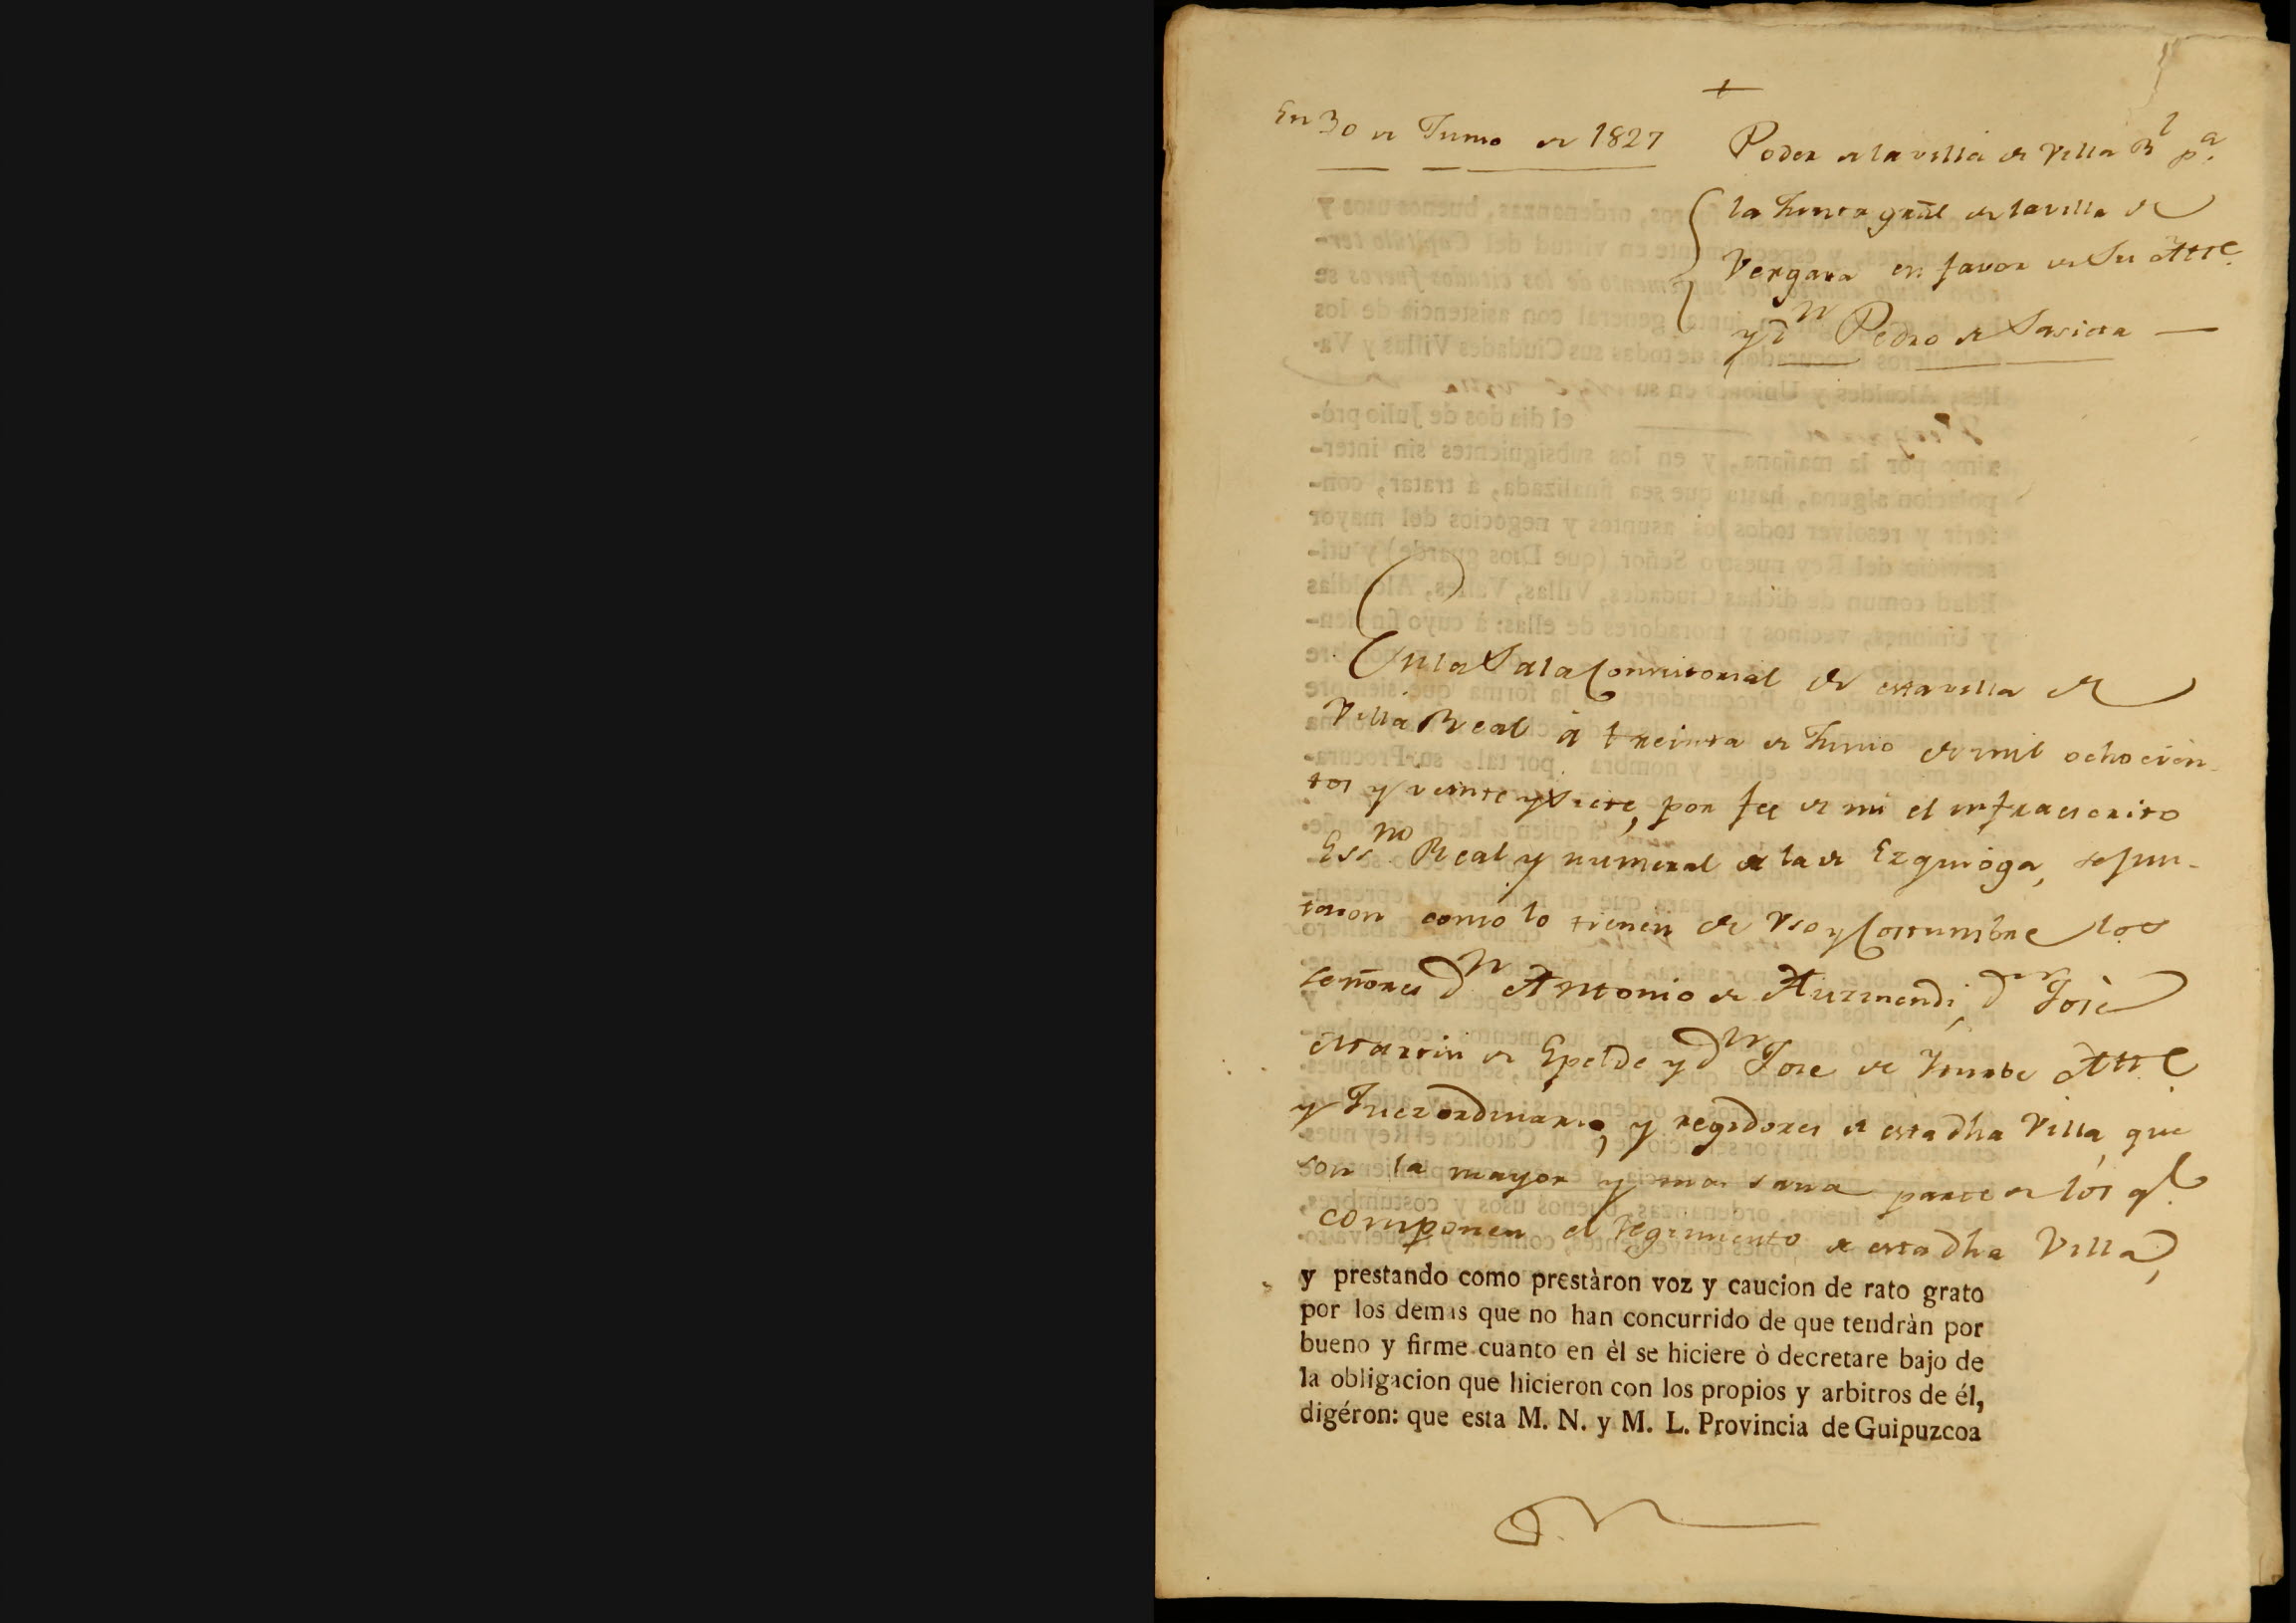 En 30 de Junio de 1827
Poder de la villa de Villa Rl pa.
la Junta gral de la villa de
Vergara en favor de Su Alle.
y Dn Pedro de Sasieta
En la Sala Consistorial de esta villa de
Villa Real à treinta de Junio de mil ochocien-
tos y veinte y siete, por fee de mi el infraescrito
Essno Real y numeral de la de Ezquioga, se jun-
taron como lo tienen de Vso y Costumbre los
señores dn Antonio de Aurmendi, dn Josè
Martin de Epelde y dn Jose de Alle
y Juez ordinario, y regidores de esta dha Villa, que
son la mayor y mas sana parte de los ql.
componen el regimiento de esta dha Villa,
y prestando como prestàron voz y caucion de rato grato
por los demas que no han concurrido de que tendràn por
bueno y firme cuanto en èl se hiciere ò decretare bajo de
la obligacion que hicieron con los propios y arbitros de él,
digéron: que esta M. N. y M. L. Provincia de Guipuzcoa